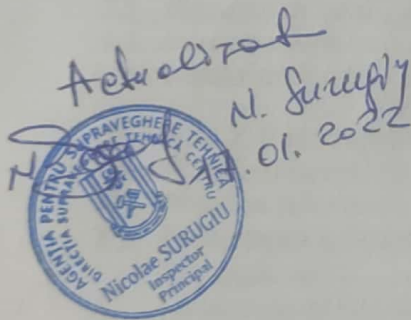 Actualizat
N. Surugiu
.01. 2022
AGENȚIA PENTRU SUPRAVEGHERE TEHNICĂ
DIRECȚIA SUPRAVEGHERE TEHNICĂ CENTRU
Nicolae SURUGIU
Inspector
Principal